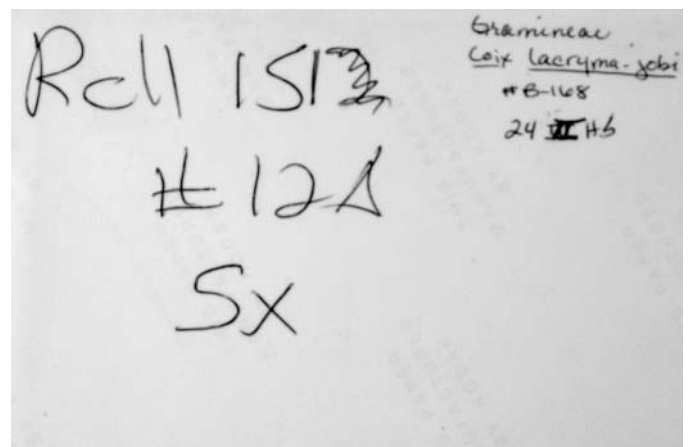 Roll 151
# 12A
5x
Gramineae
Coix lacryma-jobi
# B-168
24 VII